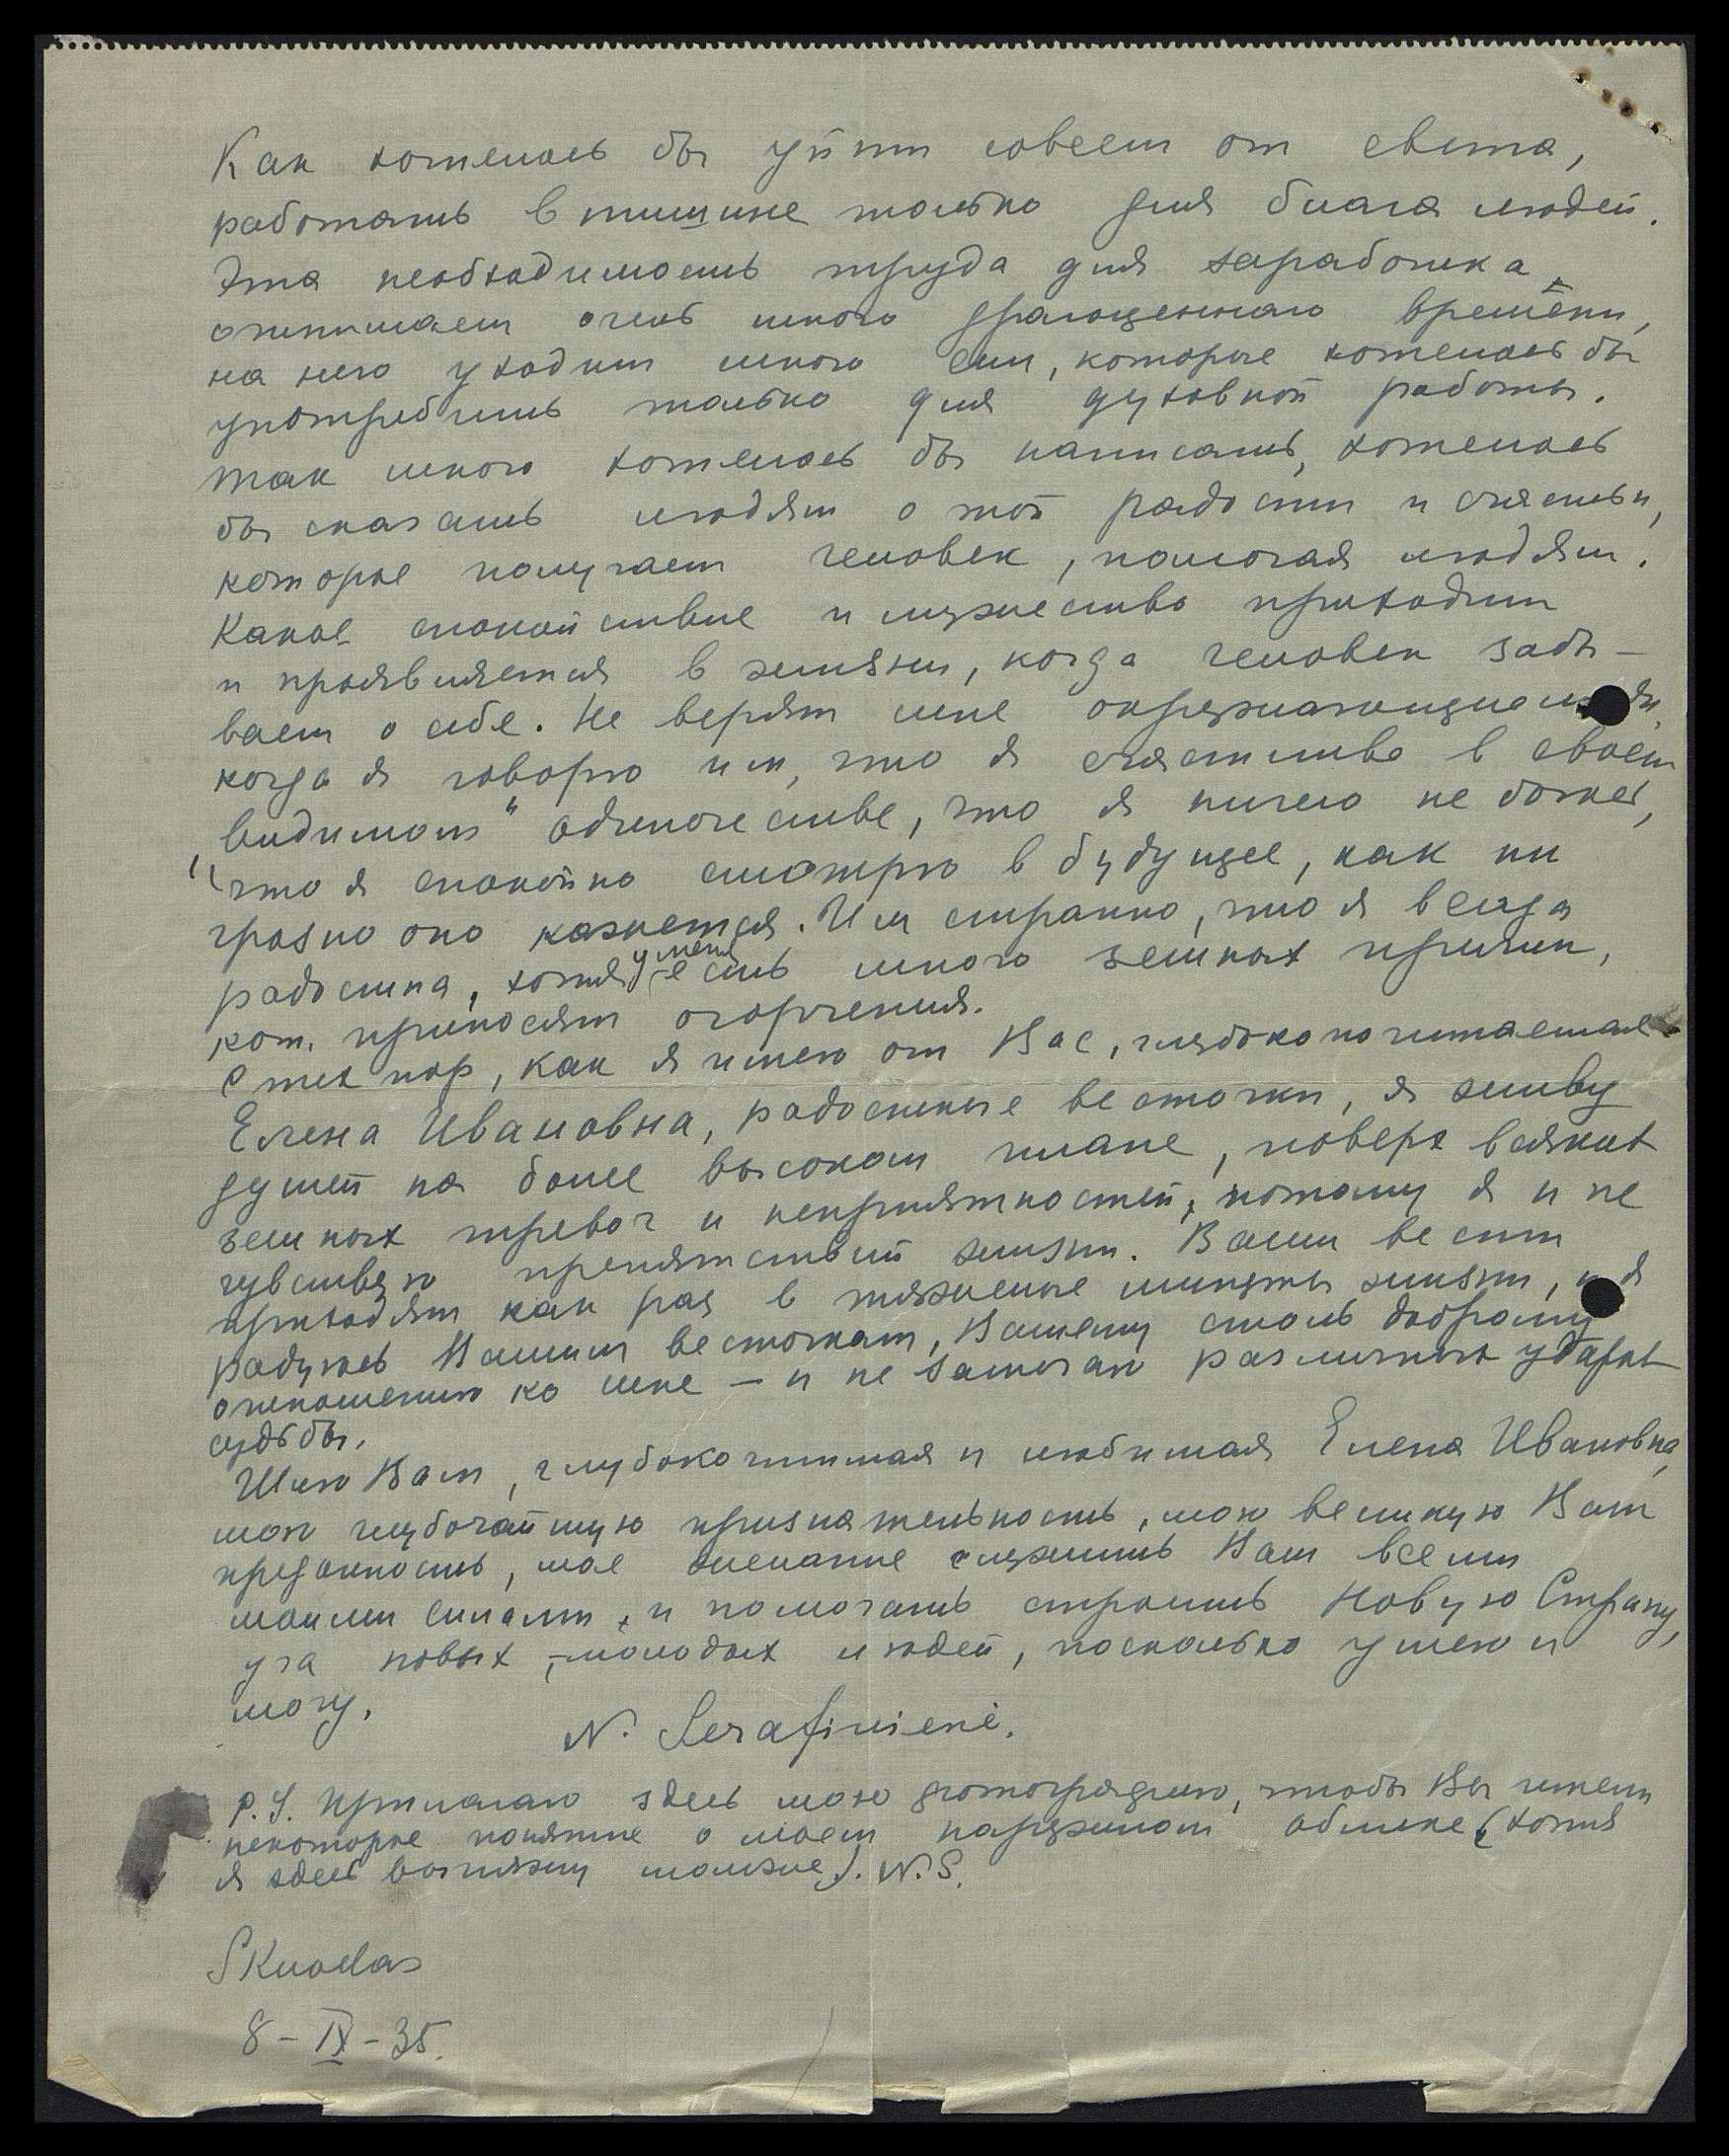 Как хотелось бы уйти совсем от света,
работать в тишине только для блага людей.
Эта необходимость труда для заработка
отнимает очень много драгоценнаго времени,
на него уходит много сил, которые хотелось бы
употребить только для духовной работы.
Так много хотелось бы написать, хотелось
бы сказать людям о той радости и счастьи,
которые получает человек, помогая людям.
Какое спокойствие и мужество приходит
и проявляется в жизни, когда человек забы-
вает о себе. Не верят мне окружающие люди,
когда я говорю им, что я счастлива в своем
„видимом" одиночестве, что я ничего не боюсь,
что я спокойно смотрю в будущее, как ни
грозно оно кажется. Им странно, что я всегда
радостна, хотя у меня есть много земных причин,
кот. приносят огорчения.
С тех пор, как я имею от Вас, глубокопочитаемая
Елена Ивановна, радостные весточки, я живу
душей на более высоком плане, поверх всяких
земных тревог и неприятностей, потому я и не
чувствую препятствий жизни. Ваши вести
приходят как раз в тяжелые минуты жизни, и я
радуюсь Вашим весточкам, Вашему столь доброму
отношению ко мне – и не замечаю различных ударов
судьбы.
Шлю Вам, глубокочтимая и любимая Елена Ивановна,
мою глубочайшую признательность, мою великую Вам
преданность, мое желание служить Вам всеми
моими силами, и помогать строить Новую Страну,
уча новых, молодых людей, поскольку умею и
могу.
N. Serafinienė.
P.S. Прилагаю здесь мою фотографию, чтобы Вы имели
некоторое понятие о моем наружном облике (хотя
я здесь выгляжу моложе). N.S.
Skuodas
8-IX-35.